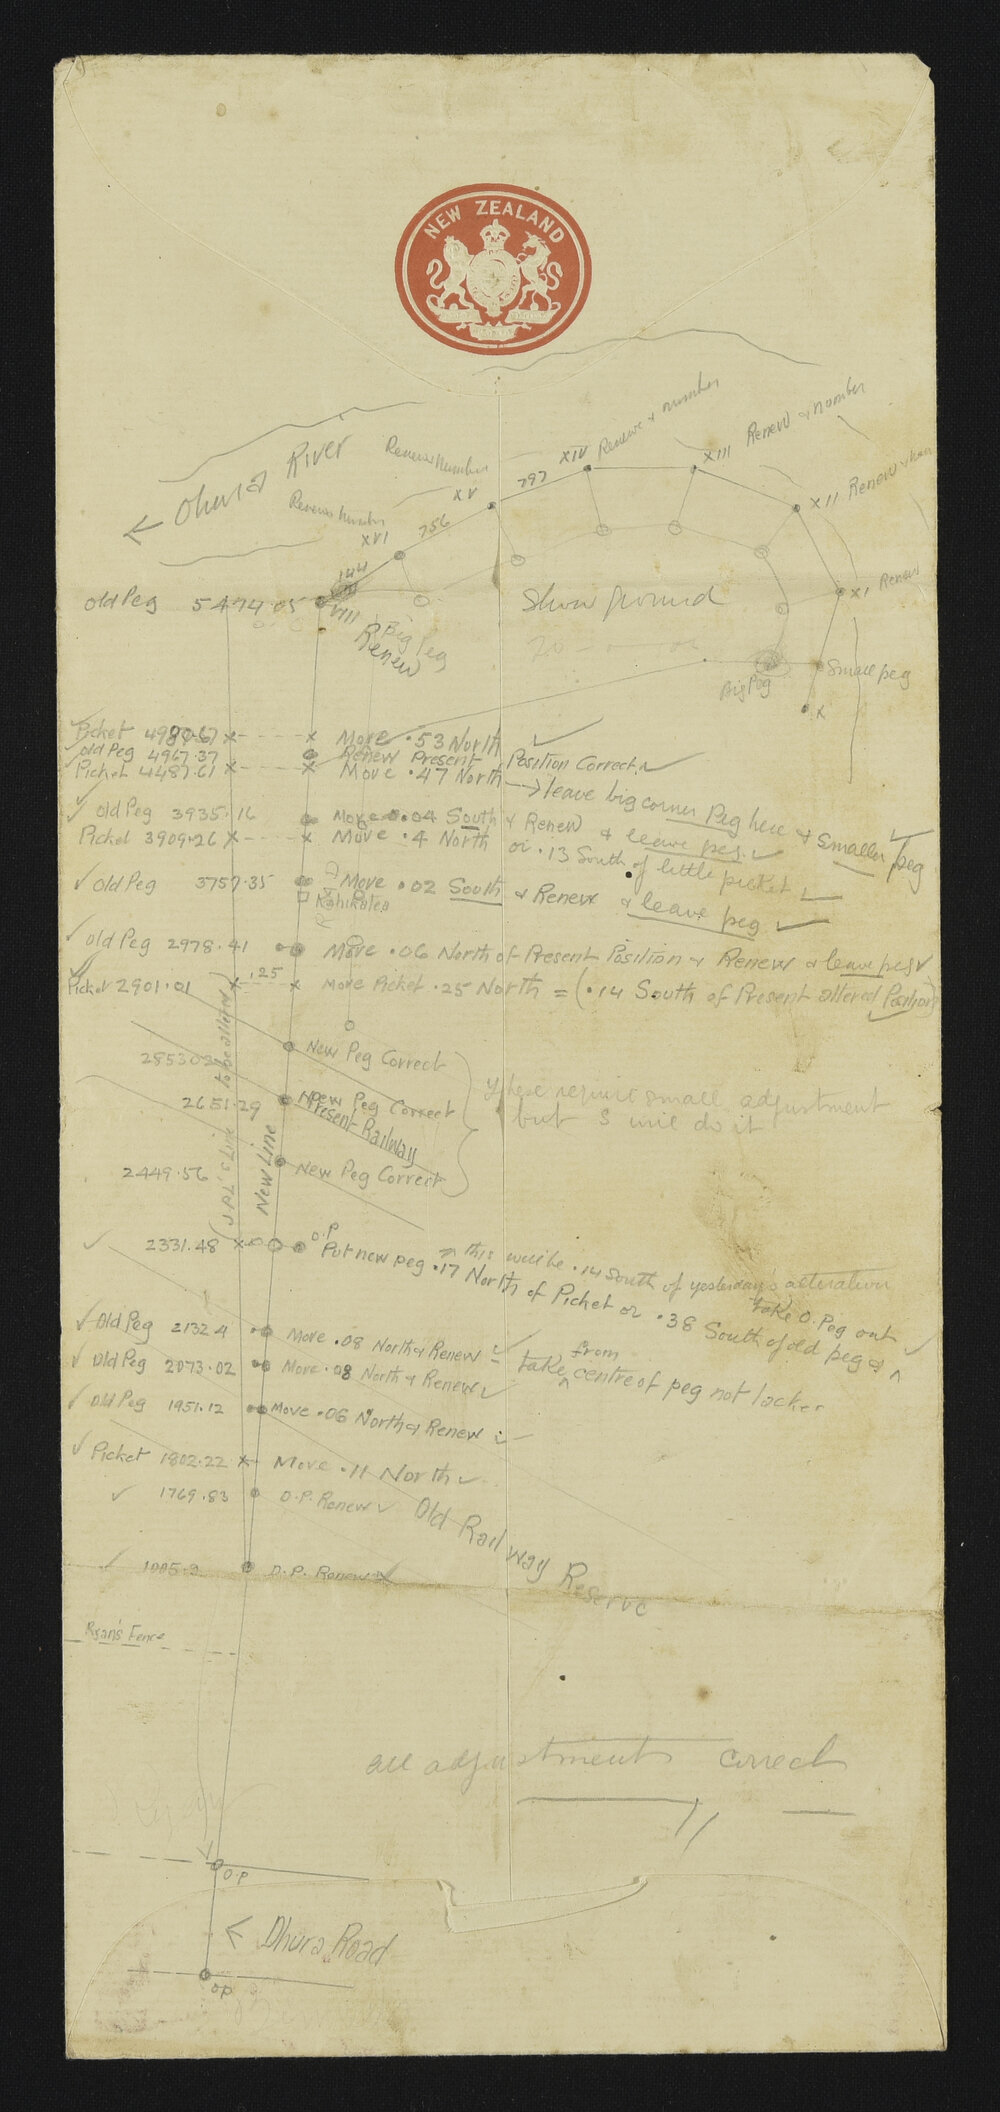 NEW ZEALAND
Renew & Number
XIV
Renew & Number
XIII
XII Renew
River
Ohura
Renew Number
XV
797
Renew Number
XVI
756
144
XI Renew
Old Peg 5474.05
VIII
Big Peg
Renew
Show ground
Big Peg
Small peg
X
Picket 4980.67 Move .53 North
Old Peg 4967.37 Renew Present Position Correct
Picket 4487.61 Move .47 North → leave big corner Peg here & Smaller peg
Old Peg 3935.16 Move 0.04 South & Renew & leave peg
Picket 3909.26 Move .4 North or .13 South of little picket
Old Peg 3757.35 Move .02 South & Renew & leave peg
Kahikatea
Old Peg 2978.41 Move .06 North of Present Position & Renew & leave peg
Picket 2901.01 .25 Move Picket .25 North = (.14 South of Present altered Position)
New Peg Correct
These require small adjustment
but I will do it
2651.29 New Peg Correct
Present Railway
2449.56 New Peg Correct
Line to be altered
New Line
2331.48 O.P
Put new peg .17 North of Picket or .38 South of old peg &
this will be .14 South of yesterday's alteration
take O. Peg out
Old Peg 2132.4 Move .08 North & Renew
Old Peg 2073.02 Move .08 North & Renew
take from centre of peg not
Old Peg 1951.12 Move .06 North & Renew
Picket 1802.22 Move .11 North
1769.83 O.P. Renew
Old Railway Reserve
O.P. Renew
Ryan's Fence
all adjustments correct
O.P
Ohura Road
O.P